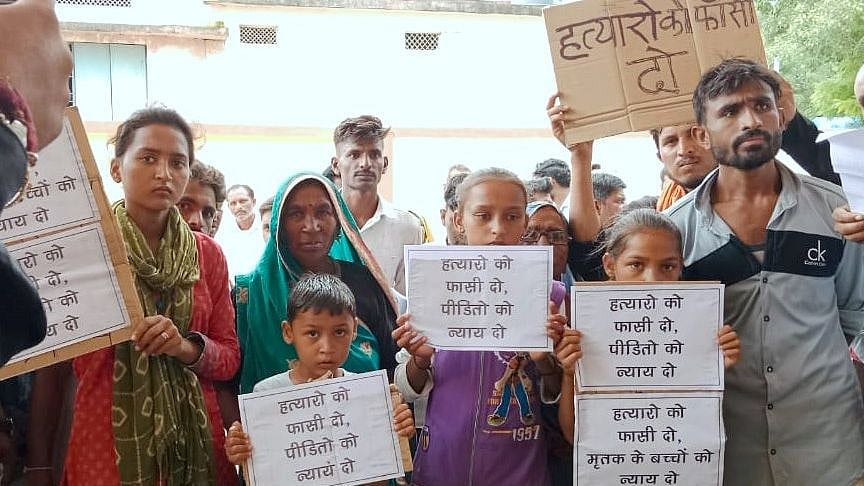 हत्यारो को फाँसी
दो
बच्चों को
दो
को
दो,
को
दो
हत्यारो को
फासी दो,
पीडितो को
न्याय दो
हत्यारो को
फासी दो,
पीडितो को
न्याय दो
हत्यारो को
फासी दो,
पीडितो को
न्याय दो
हत्यारो को
फासी दो,
मृतक के बच्चों को
न्याय दो
1957
ck